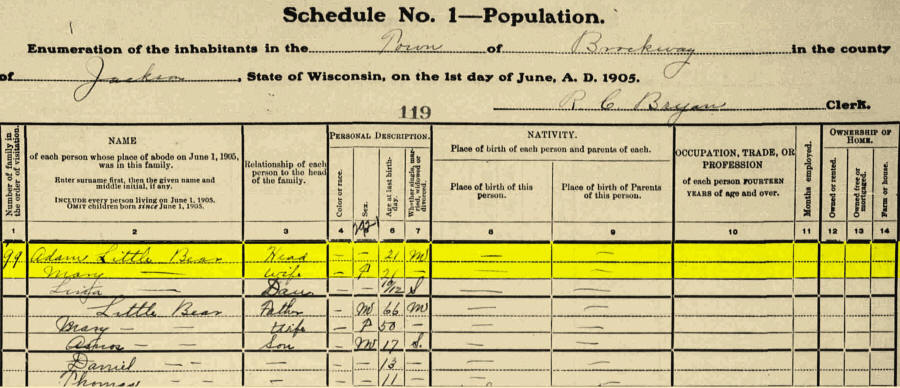 Schedule No. 1—Population.
Enumeration of the inhabitants in the Town of Brockway in the county
of Jackson, State of Wisconsin, on the 1st day of June, A. D. 1905.
R C Bryan Clerk.
119
Number of family in the order of visitation.
NAME
of each person whose place of abode on June 1, 1905, was in this family.
Enter surname first, then the given name and middle initial, if any.
INCLUDE every person living on June 1, 1905.
OMIT children born since June 1, 1905.
Relationship of each person to the head of the family.
PERSONAL DESCRIPTION.
Color or race.
Sex.
Age at last birthday.
Whether single, married, widowed or divorced.
NATIVITY.
Place of birth of each person and parents of each.
Place of birth of this person.
Place of birth of Parents of this person.
OCCUPATION, TRADE, OR PROFESSION
of each person FOURTEEN YEARS of age and over.
Months employed.
OWNERSHIP OF HOME.
Owned or rented.
Owned free or mortgaged.
Farm or house.
1 2 3 4 6 7 8 9 10 11 12 13 14
99 Adam Little Bear Head – – 21 M — —
Mary — wife – F 21 — —
Dau – – 10/12 S — —
Little Bear Father – M 66 M — —
Mary – – Wife – F 50 – — —
Amos – – Son – M 17 S. — —
Daniel – – – 13 – — —
Thomas – – – 11 – — —